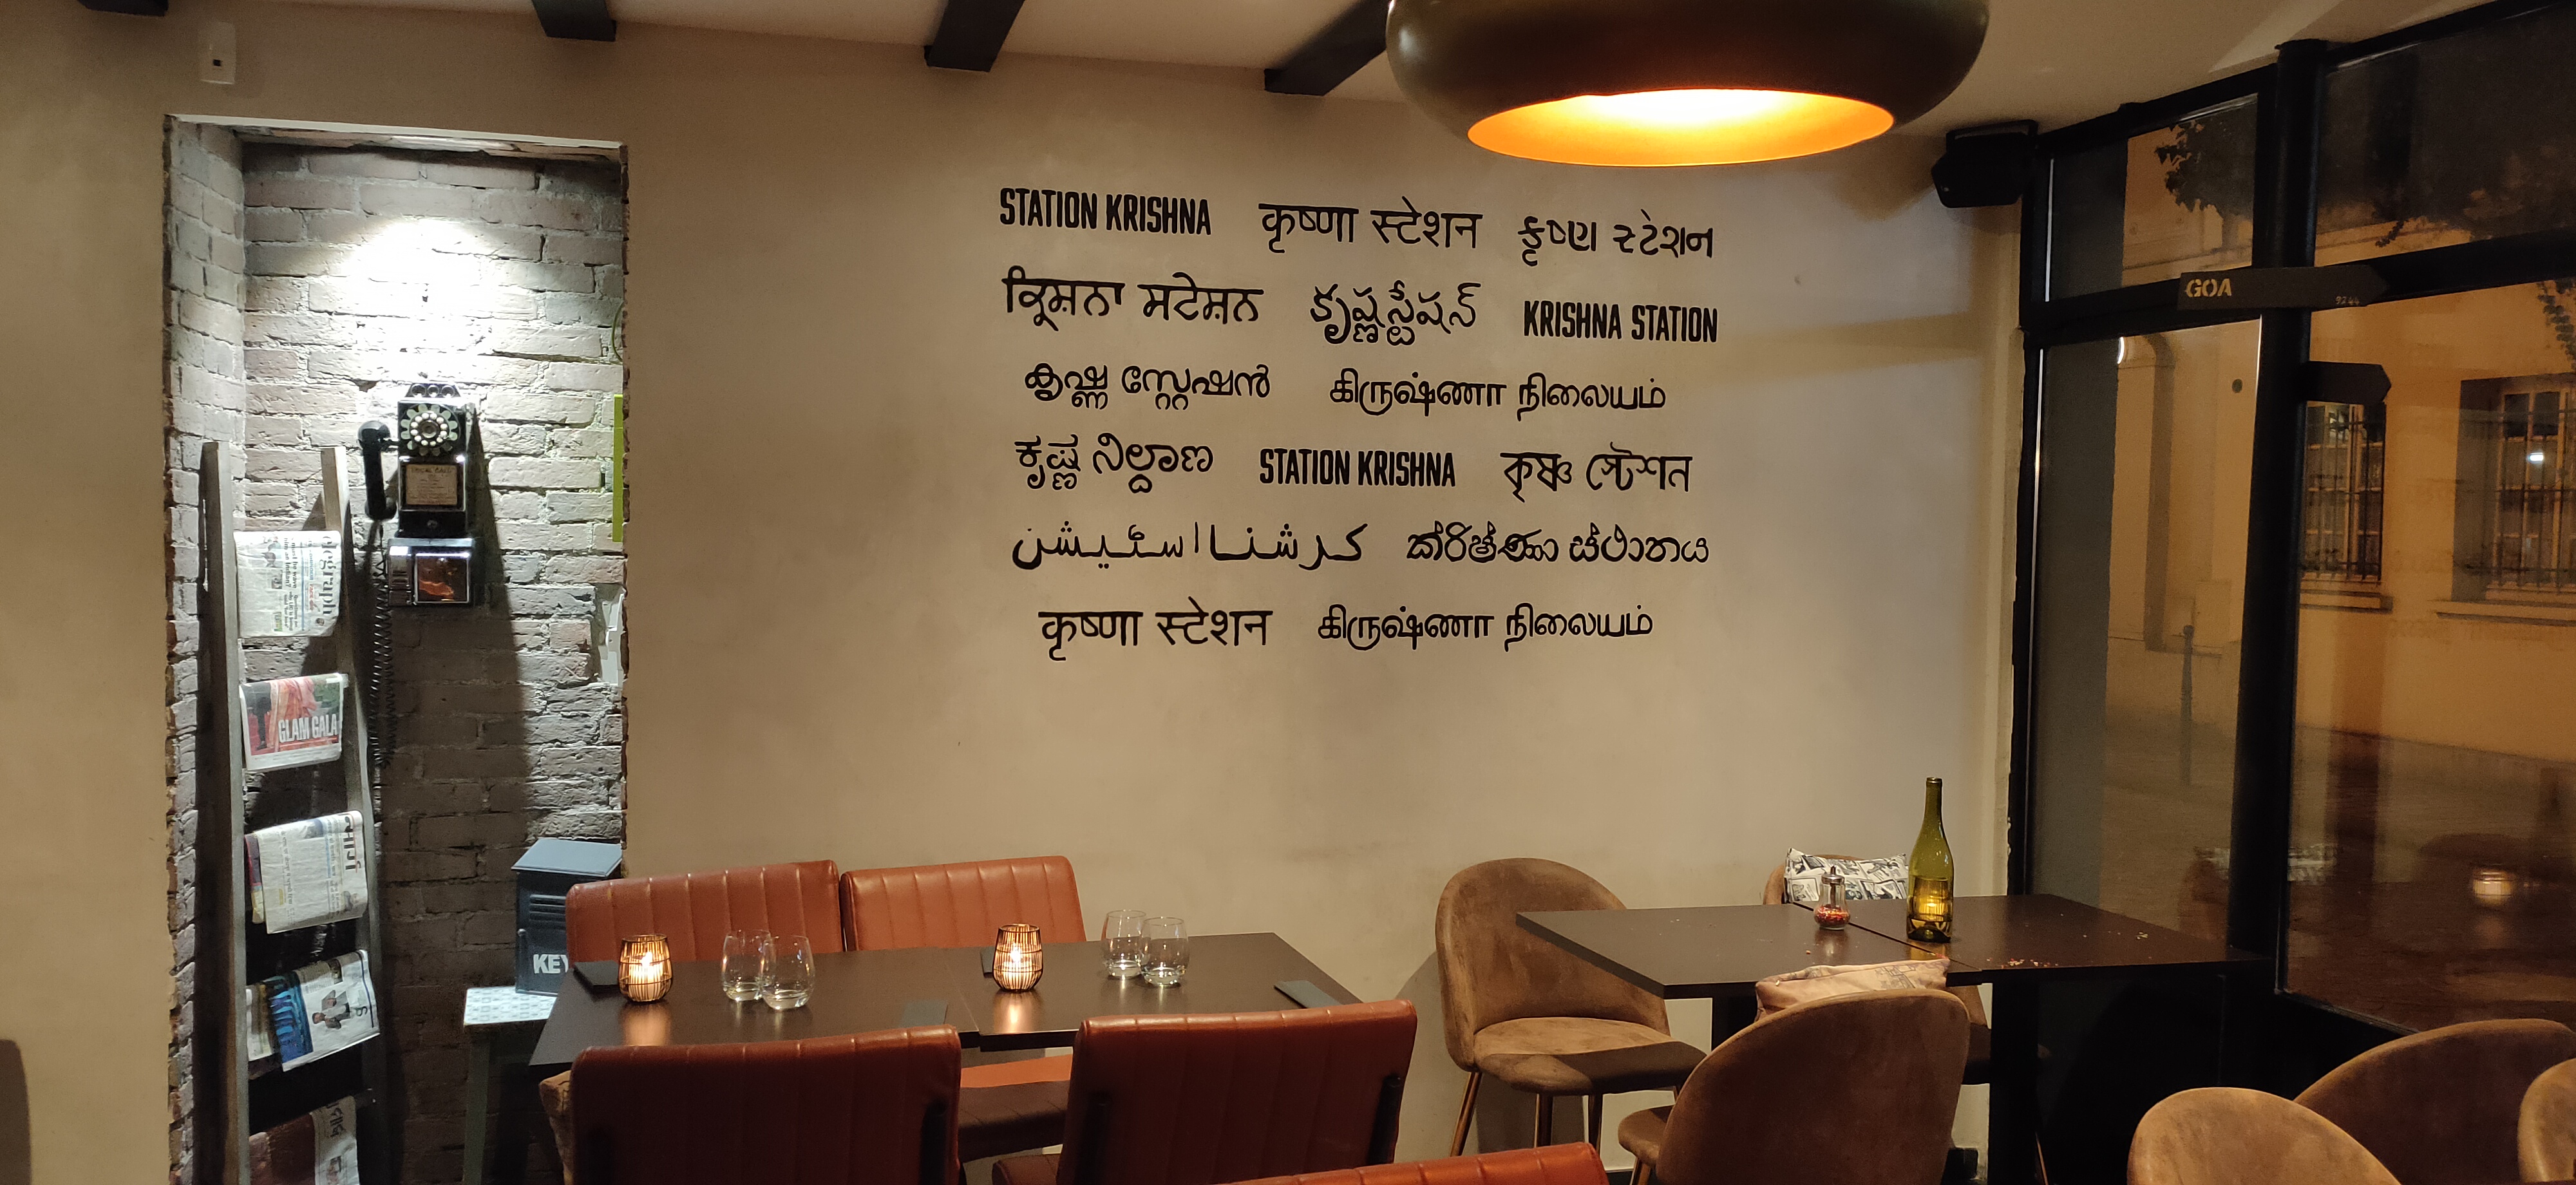 STATION KRISHNA कृष्णा स्टेशन કૃષ્ણ સ્ટેશન
ਕ੍ਰਿਸ਼ਨਾ ਸਟੇਸ਼ਨ కృష్ణస్టేషన్ KRISHNA STATION
കൃഷ്ണ സ്റ്റേഷൻ கிருஷ்ணா நிலையம்
ಕೃಷ್ಣ ನಿಲ್ದಾಣ STATION KRISHNA কৃষ্ণ স্টেশন
کرشنا اسٹیشن ක්රිෂ්ණා ස්ථානය
कृष्णा स्टेशन கிருஷ்ணா நிலையம்
GOA
GLAM GALA
KEY